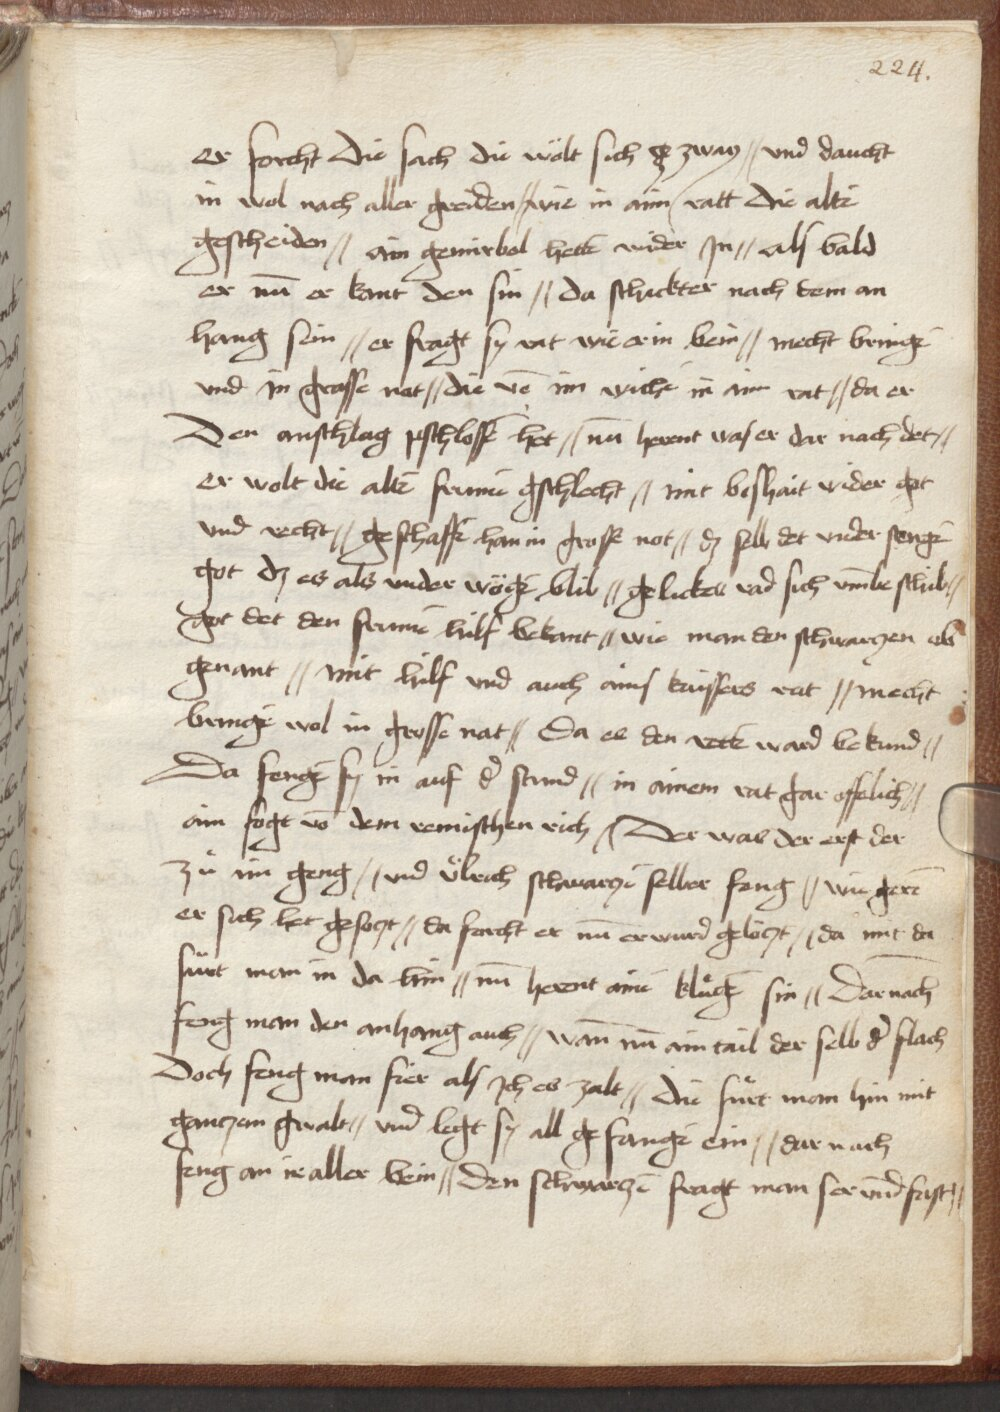 224.
er forcht die sach die wölt sich zway // vnd daucht
in wol nach aller greiden // wie in aim ratt die altē
gescheiden // ain gemirbel hett wider In // als bald
er nū er kant den sin // da schickter nach dem an
hang sein // er fragt sy rat wie er in bein // mecht bringē
vnd in grosse not // die vō im wichē in aim rat // da er
Den anschlag pschlossē het // nū herent was er dar nach det //
er wolt die altē frumē gschlecht // mit boshait wider got
vnd recht // geschaffē han in grosse not // dz selb det vnder stengē
got dz es als vnder wögē blib // gelickes rad sich vmbe schib //
got det den frumē hilf bekant // wie man den schwarzen ob
genant // mit hilf vnd auch ains keissers rat // mecht
bringē wol in grosse nat // Da es den rett ward bekund //
Da fengē sy in auf dˀ stund // in ainem rat gar offelich //
ain fogt vō dem remischen rich // Der was der erst der
zů im geng // vnd ůlrich schwarzē selber feng // wie gerē
er sich het gesetzt // da forcht er nū er wurd geletzt // da mit da
fůrt man in da hin // nū herent ainē klůgē sin // Dar nach
feng man den anhang auch // wan nū ain tail der selb dˀ flach
Doch feng man fier als Ich es zalt // die fůrt man hin mit
gantzem gwalt // vnd legt sy all gefangē ein // dar nach
feng an ir aller bein // Den schwarzē fragt man ser vnd fast //